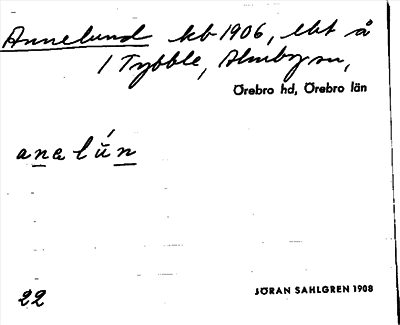 Annelund kb 1906, lht å
1 Tybble, Almby sn,
Örebro hd, Örebro län
anelún
22 JÖRAN SAHLGREN 1908